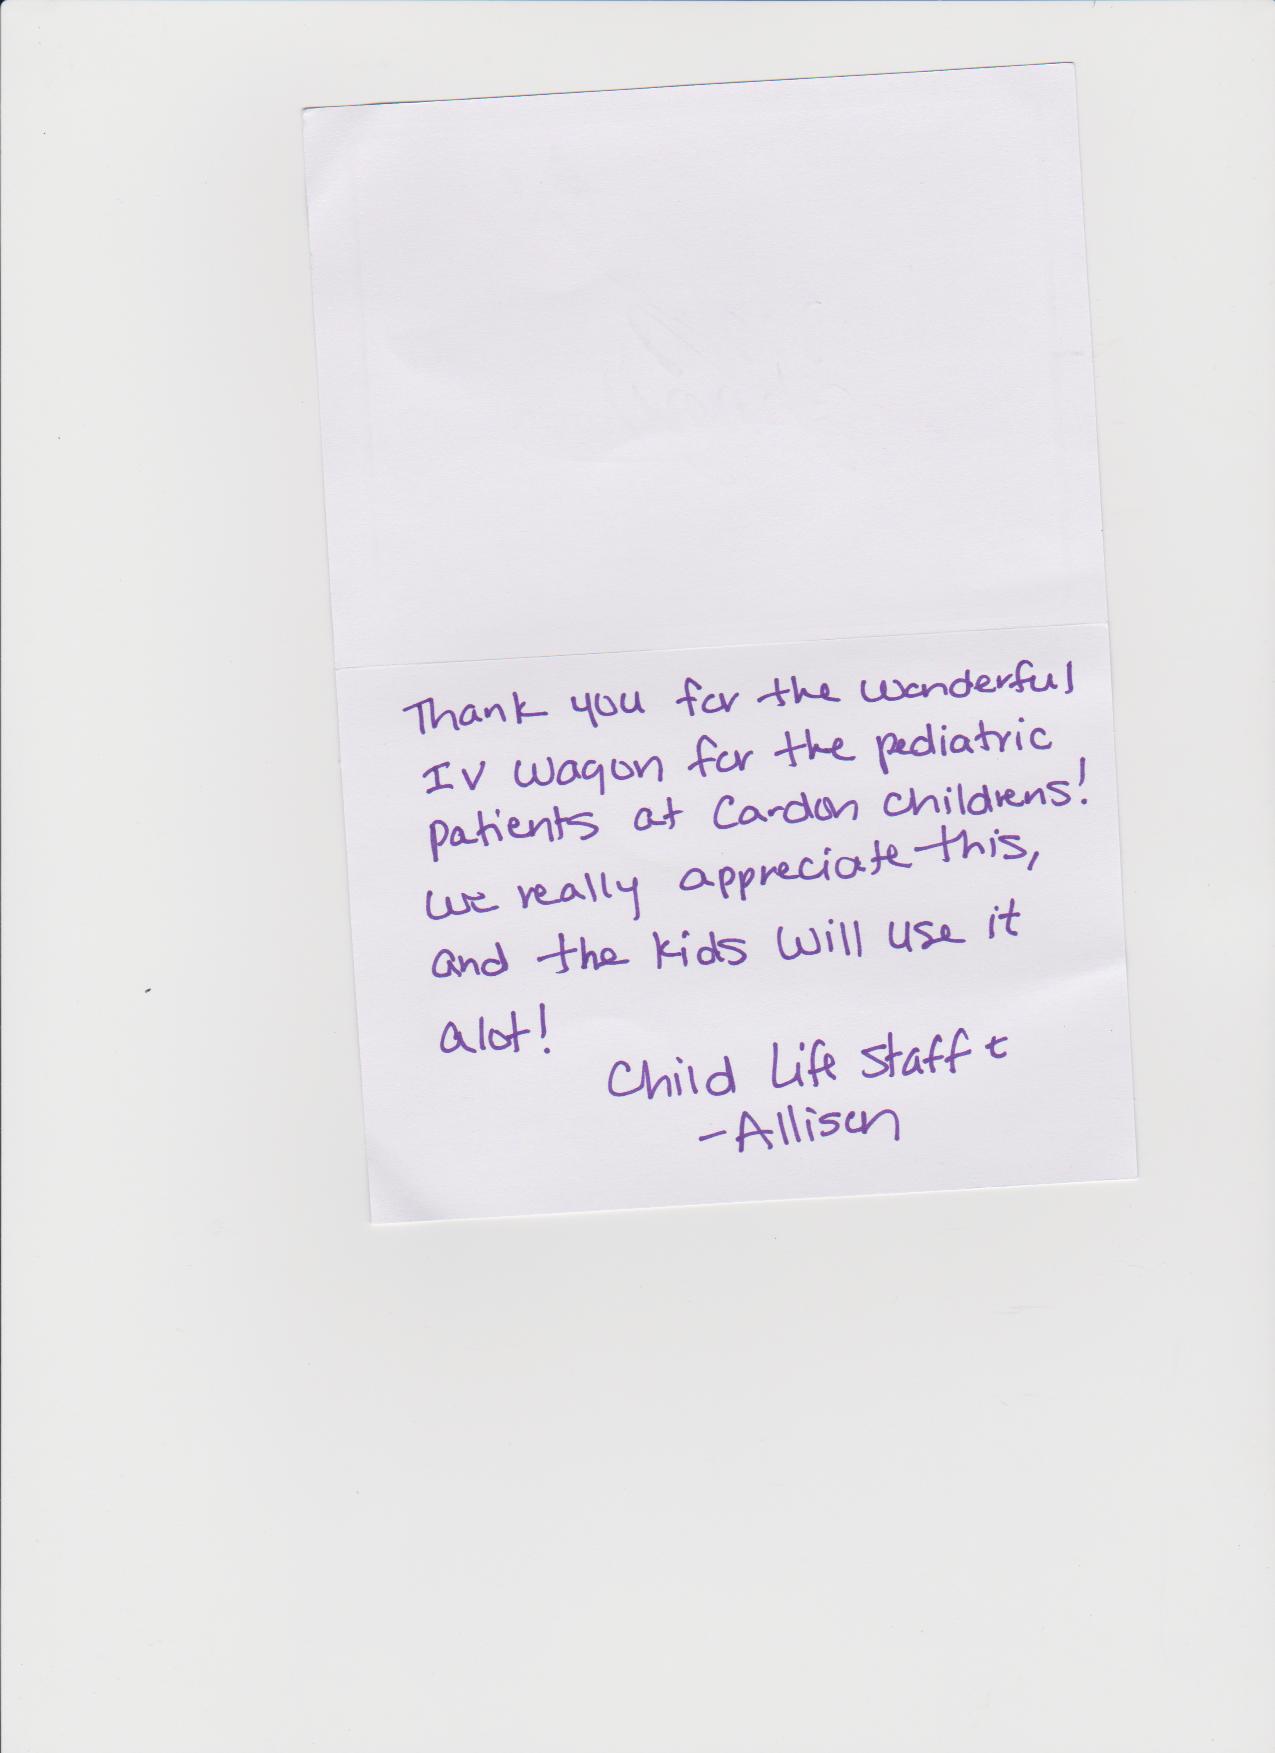 Thank you for the wonderful
IV wagon for the pediatric
patients at Cardon childrens!
we really appreciate this,
and the kids will use it
alot!
Child Life Staff &
-Allison